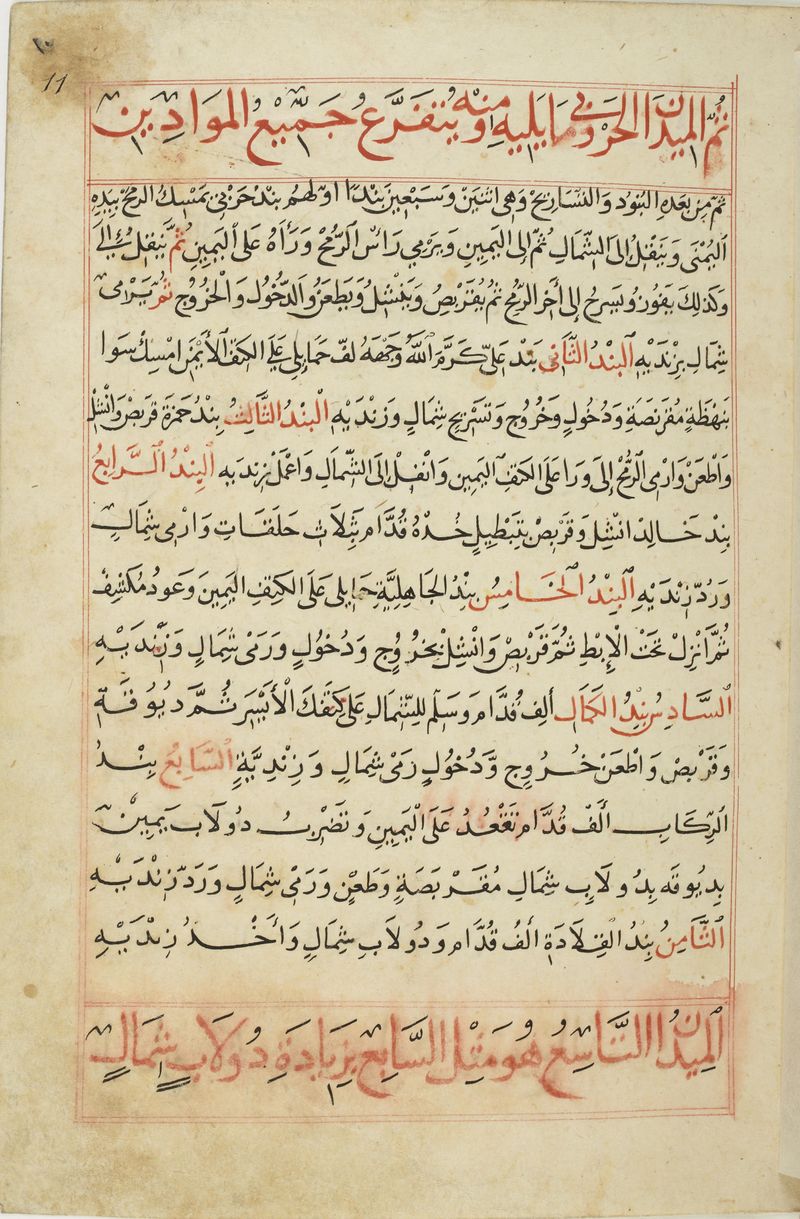 11
ثم الميدن الحروفي ما يليه ومنه يتفرع جميع الموادين
ثم من بعده البنود والتساريح وهي اثنين وسبعين بندا اولهم بند حربي تمسك الرمح بيده
اليمنى وينقل الى الشمال ثم الى اليمين ويرمي راس الرمح وراه على اليمين ثم ينفل
وكذلك يفوز ويسرح الى اخر الرمح ثم يقتربص وينشل ويطعن والدخول والخروج ثم يرمى
شمال بزنديه البند الثاني بند علي كرم الله وجهه لف حمايلي على الكتف الايمن امسك سوا
بنهظة مقربصة ودخول وخروج وتسريح شمال وزنديه البند الثالث بند حمزة قربص وانشل
واطعن وارمى الرمح الى ورا على الكتف اليمين وانفل الى الشمال واعمل بزنديه البند الرابع
بند خالد انشل وقربص بتبطيل خذه قدام بثلاث حلقات وارمى شمال
ورد زنديه البند الخامس بند الجاهلية حمايلى على الكتف اليمين وعود مكشف
ثم انزل تحت الابط ثم قربص وانشل بخروج ودخول ورمى شمال وزنديه
السادس بند الكمال الف قدام وسلم للشمال على كتفك الايسر ثم دبوقة
وقربص واطعن خروج ودخول رمى شمال وزندية السابع بند
الركاب الف قدام تقعد على اليمين وتضرب دولاب يمين
بدبوقه بدولاب شمال مقربصة وطعن ورمى شمال ورد زنديه
الثامن بند القلادة الف قدام ودولاب شمال واخد زنديه
الميدن التاسع هو مثل السابع بزيادة دولاب شمال